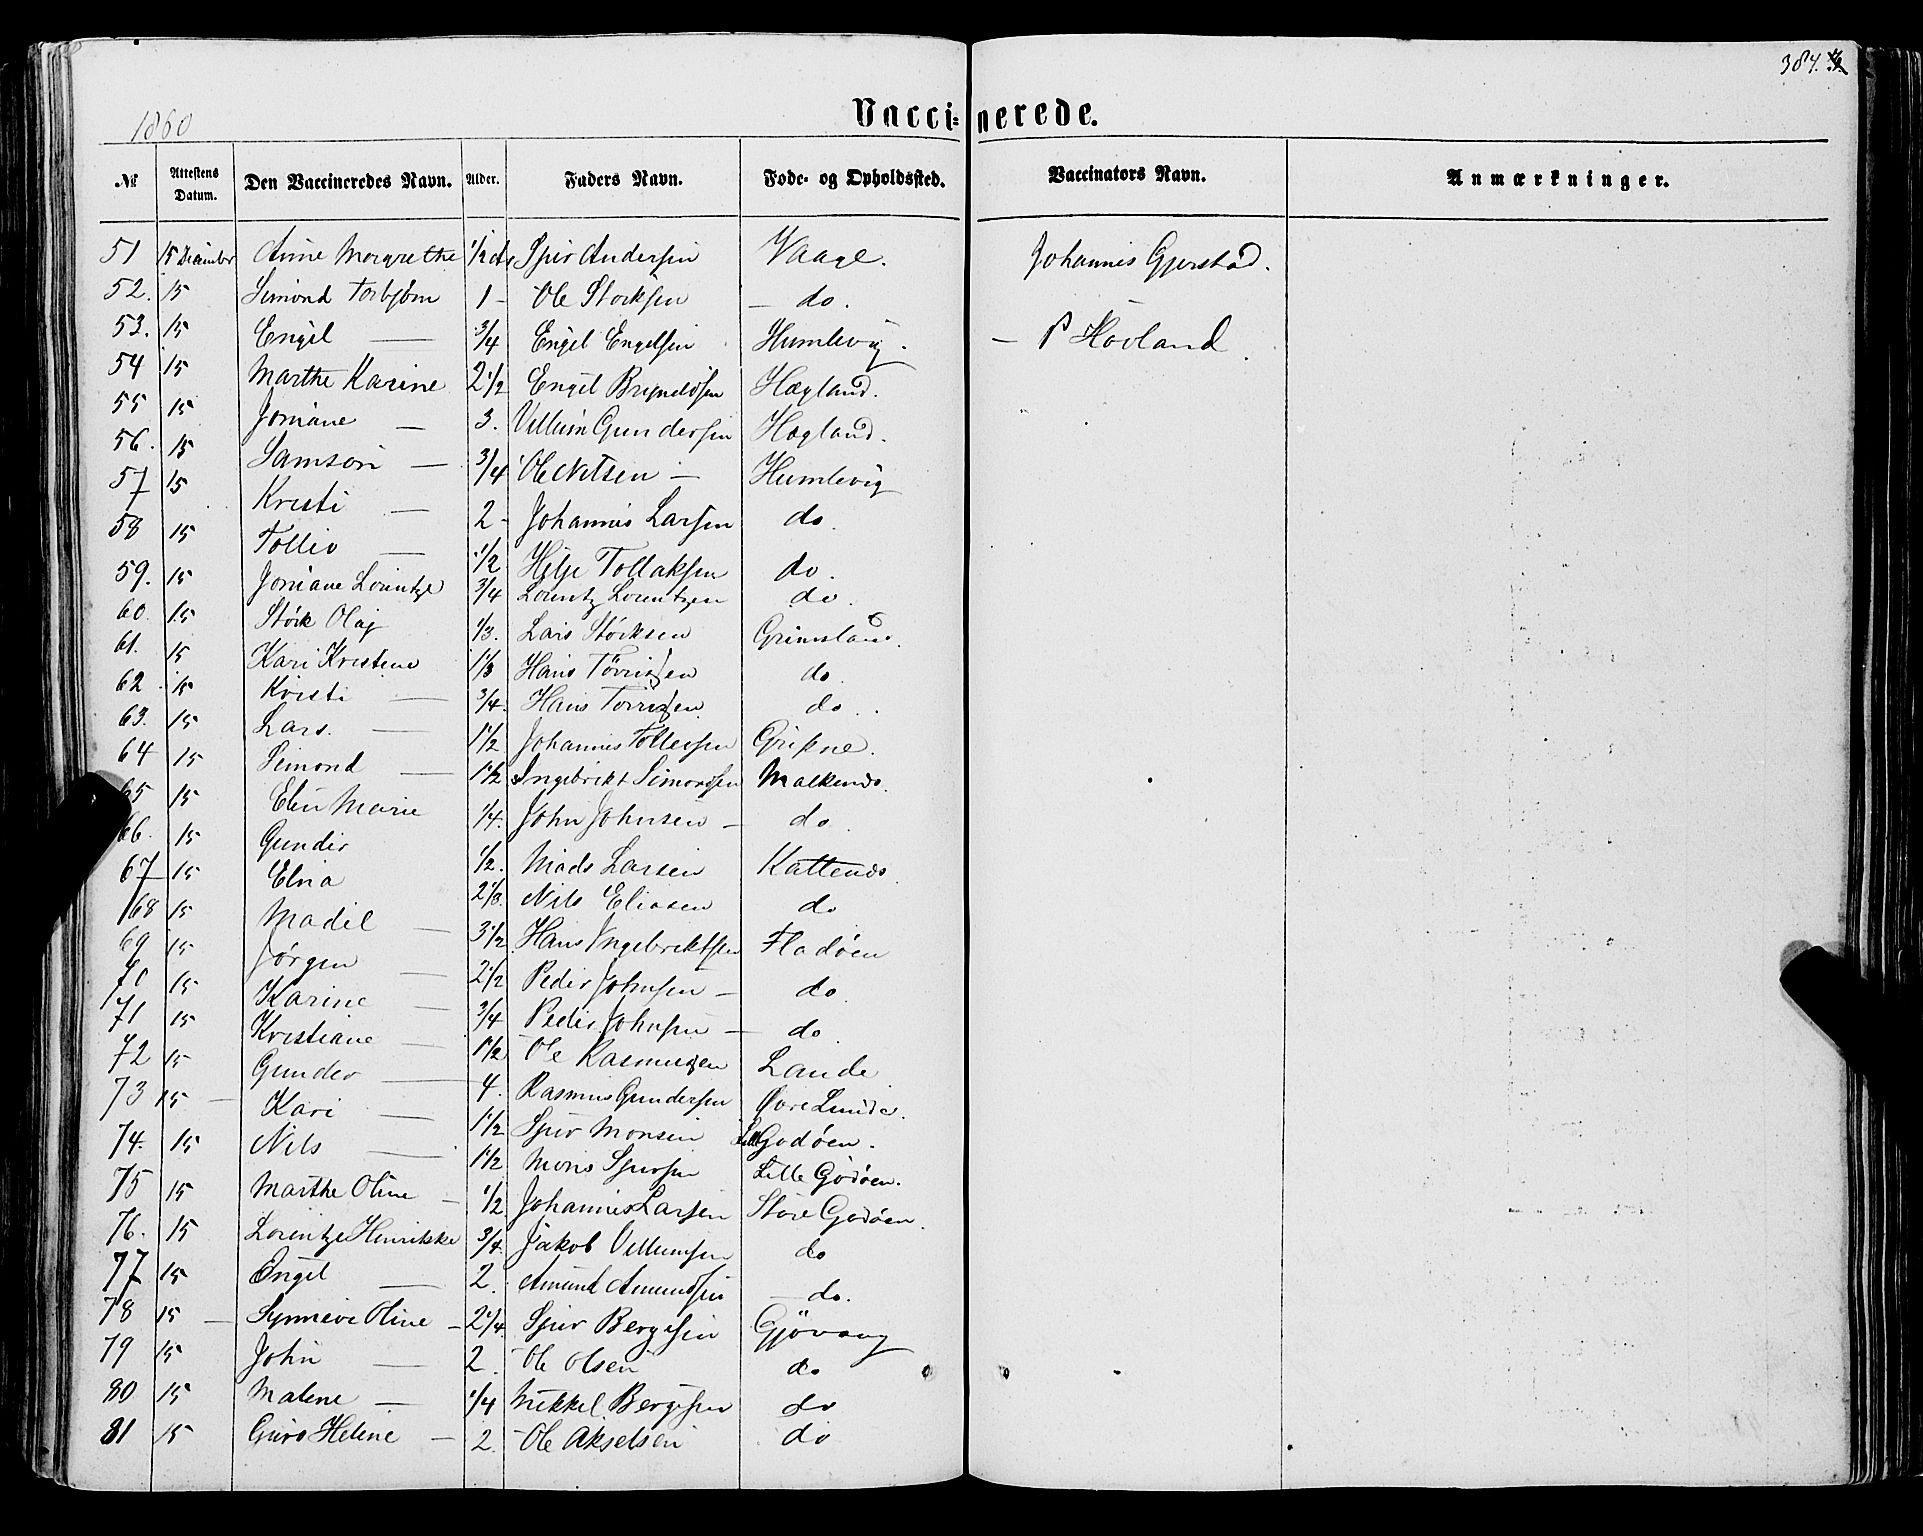 384.
1860
Vaccinerede.
№ Attestens Datum. Den Vaccineredes Navn. Alder. Faders Navn. Føde- og Opholdssted. Vaccinators Navn. Anmærkninger.
51 15 December Anne Margrethe 1/2 Sjur Andersen Vaage. Johannes Gjerstad.
52. 15 Simond Torbjörn 1 - Ole Storksen — do.
53. 15 Engel — 3/4 Engel Engelsen Humlevig. — P Hovland
54 15 Marthe Karine 2 1/2 Engel Brynildsen Hægland.
55 15 Joniane — 3. Villum Gundersen Hægland.
56. 15 Samson — 3/4 Ole Nilsen — Humlevig
57 15 Kristi — 2 - Johannes Larsen do
58 15 Tollev — 1/2 Helje Tollaksen do.
59. 15 Joniane Lorintze 3/4 Lorintz Lorintzen do.
60. 15 Störk Olaj 1/3. Lars Störksen Grimsland.
61. 15 Kari Kristine 1 1/3 Hans Törrisen do.
62 15 Kristi — 3/4. Hans Törrisen do.
63. 15 Lars. — 1 1/2 Johannes Tollefsen Gripne.
64 15 Simond — 1 1/2 Ingebrikt Simondsen Malkenes.
65 15 Elen Marie 1/4. John Johnsen — do.
66. 15 Gunder 1/2. Mads Larsen Kattenes.
67 15 Elna 2 1/3. Nils Eliasen do
68 15 Madil — 3 1/2 Hans Ingebriktsen Fladöen
69 15 Jörgen — 2 1/2 Peder Johnsen — do.
70 15 Karine — 3/4 Peder Johnsen — do.
71 15 Kristiane — 1 1/2 Ole Rasmusen Lande
72 15 Gunder — 4. Rasmus Gundersen Øvre Lunde.
73 15 — Kari — 1 1/2 Sjur Monsen Lille Godöen.
74. 15 Nils — 1 1/2 Mons Sjursen Lille Godöen.
75 15 Marthe Oline — 1/2 Johannes Larsen Store Godöen.
76. 15 Lorintze Henrikke 3/4. Jakob Villumsen do
77 15 Engel — 2. Amund Amundsen — do.
78 15 — Synneve Oline — 2 1/4 Sjur Bergesen Gjövaag
79 15 John — 2. Ole Olsen do
80 15 Malene — 1/4 Mikkel Bergesen do
81 15 Guro Helene — 2. Ole Akselsen do